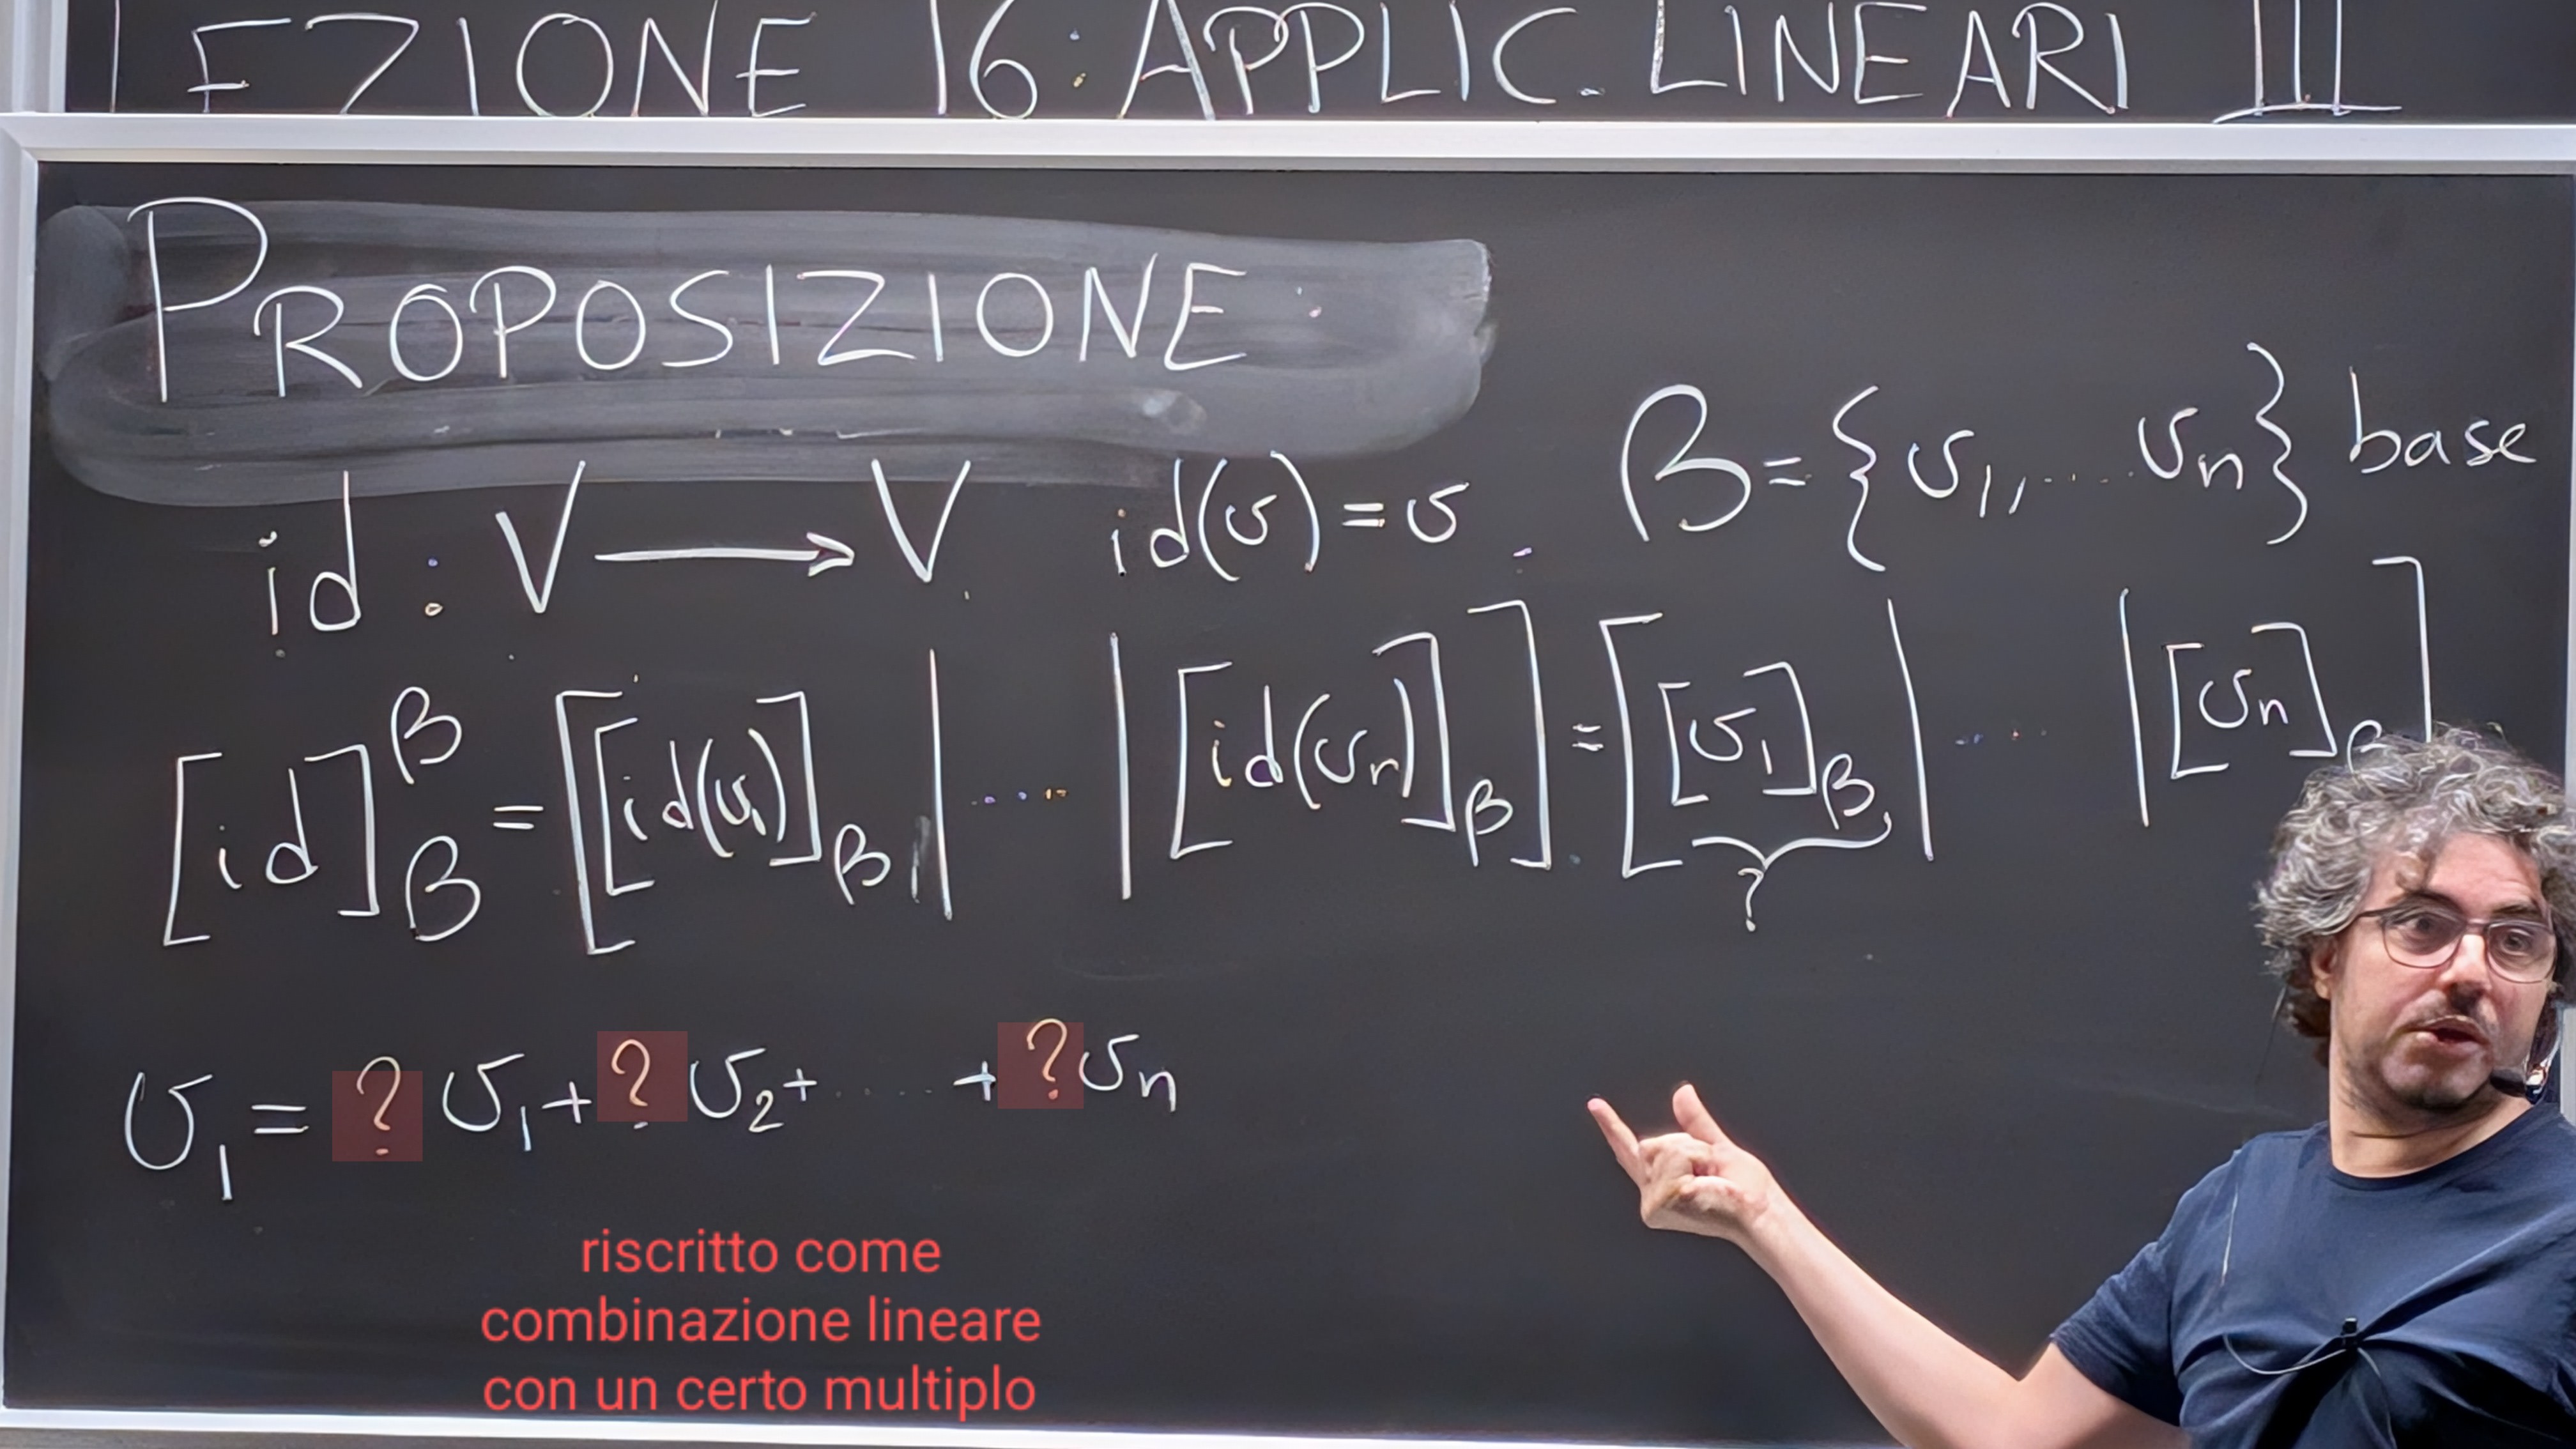 LEZIONE 16: APPLIC. LINEARI III
PROPOSIZIONE:
B = {v₁, .... vₙ} base
id : V → V id(v) = v
[id]ᴮ_B = [[id(v₁)]_B | .... | [id(vₙ)]_B] = [[v₁]_B | .... | [vₙ]_B]
?
v₁ = ? v₁ + ? v₂ + ..... + ? vₙ
riscritto come
combinazione lineare
con un certo multiplo